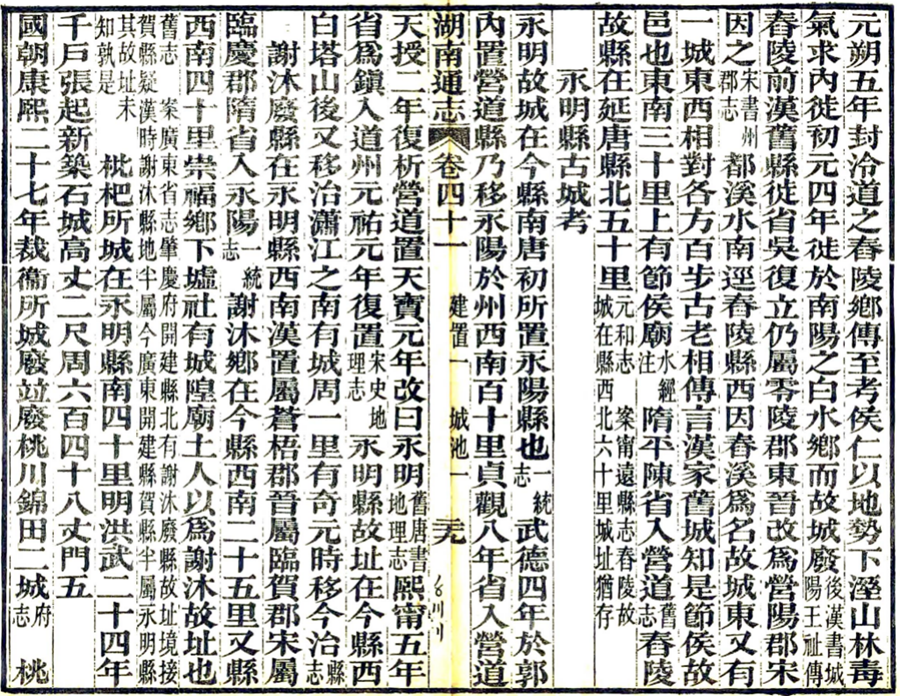 元朔五年封泠道之舂陵鄉傳至考侯仁以地勢下溼山林毒
氣求內徙初元四年徙於南陽之白水鄉而故城廢後漢書城陽王祉傳
舂陵前漢舊縣徙省吳復立仍屬零陵郡東晉改爲營陽郡宋
因之宋書州郡志 都溪水南逕舂陵縣西因舂溪爲名故城東又有
一城東西相對各方百步古老相傳言漢家舊城知是節侯故
邑也東南三十里上有節侯廟水經注 隋平陳省入營道舊志 舂陵
故縣在延唐縣北五十里元和志 案甯遠縣志舂陵故城在縣西北六十里城址猶存
永明縣古城考
永明故城在今縣南唐初所置永陽縣也一統志 武德四年於郭
內置營道縣乃移永陽於州西南百十里貞觀八年省入營道
湖南通志 卷四十一 建置一 城池一 
天授二年復析營道置天寶元年改曰永明舊唐書地理志 熙甯五年
省爲鎮入道州元祐元年復置宋史地理志 永明縣故址在今縣西
白塔山後又移治瀟江之南有城周一里有奇元時移今治縣志
謝沐廢縣在永明縣西南漢置屬蒼梧郡晉屬臨賀郡宋屬
臨慶郡隋省入永陽一統志 謝沐鄉在今縣西南二十五里又縣
西南四十里崇福鄉下墟社有城隍廟土人以爲謝沐故址也
舊志 案廣東省志肇慶府開建縣北有謝沐廢縣故址境接賀縣疑漢時謝沐縣地半屬今廣東開建縣賀縣半屬永明縣
其故址未知孰是 枇杷所城在永明縣南四十里明洪武二十四年
千戶張起新築石城高丈二尺周六百四十八丈門五
國朝康熙二十七年裁衞所城廢竝廢桃川錦田二城府志 桃